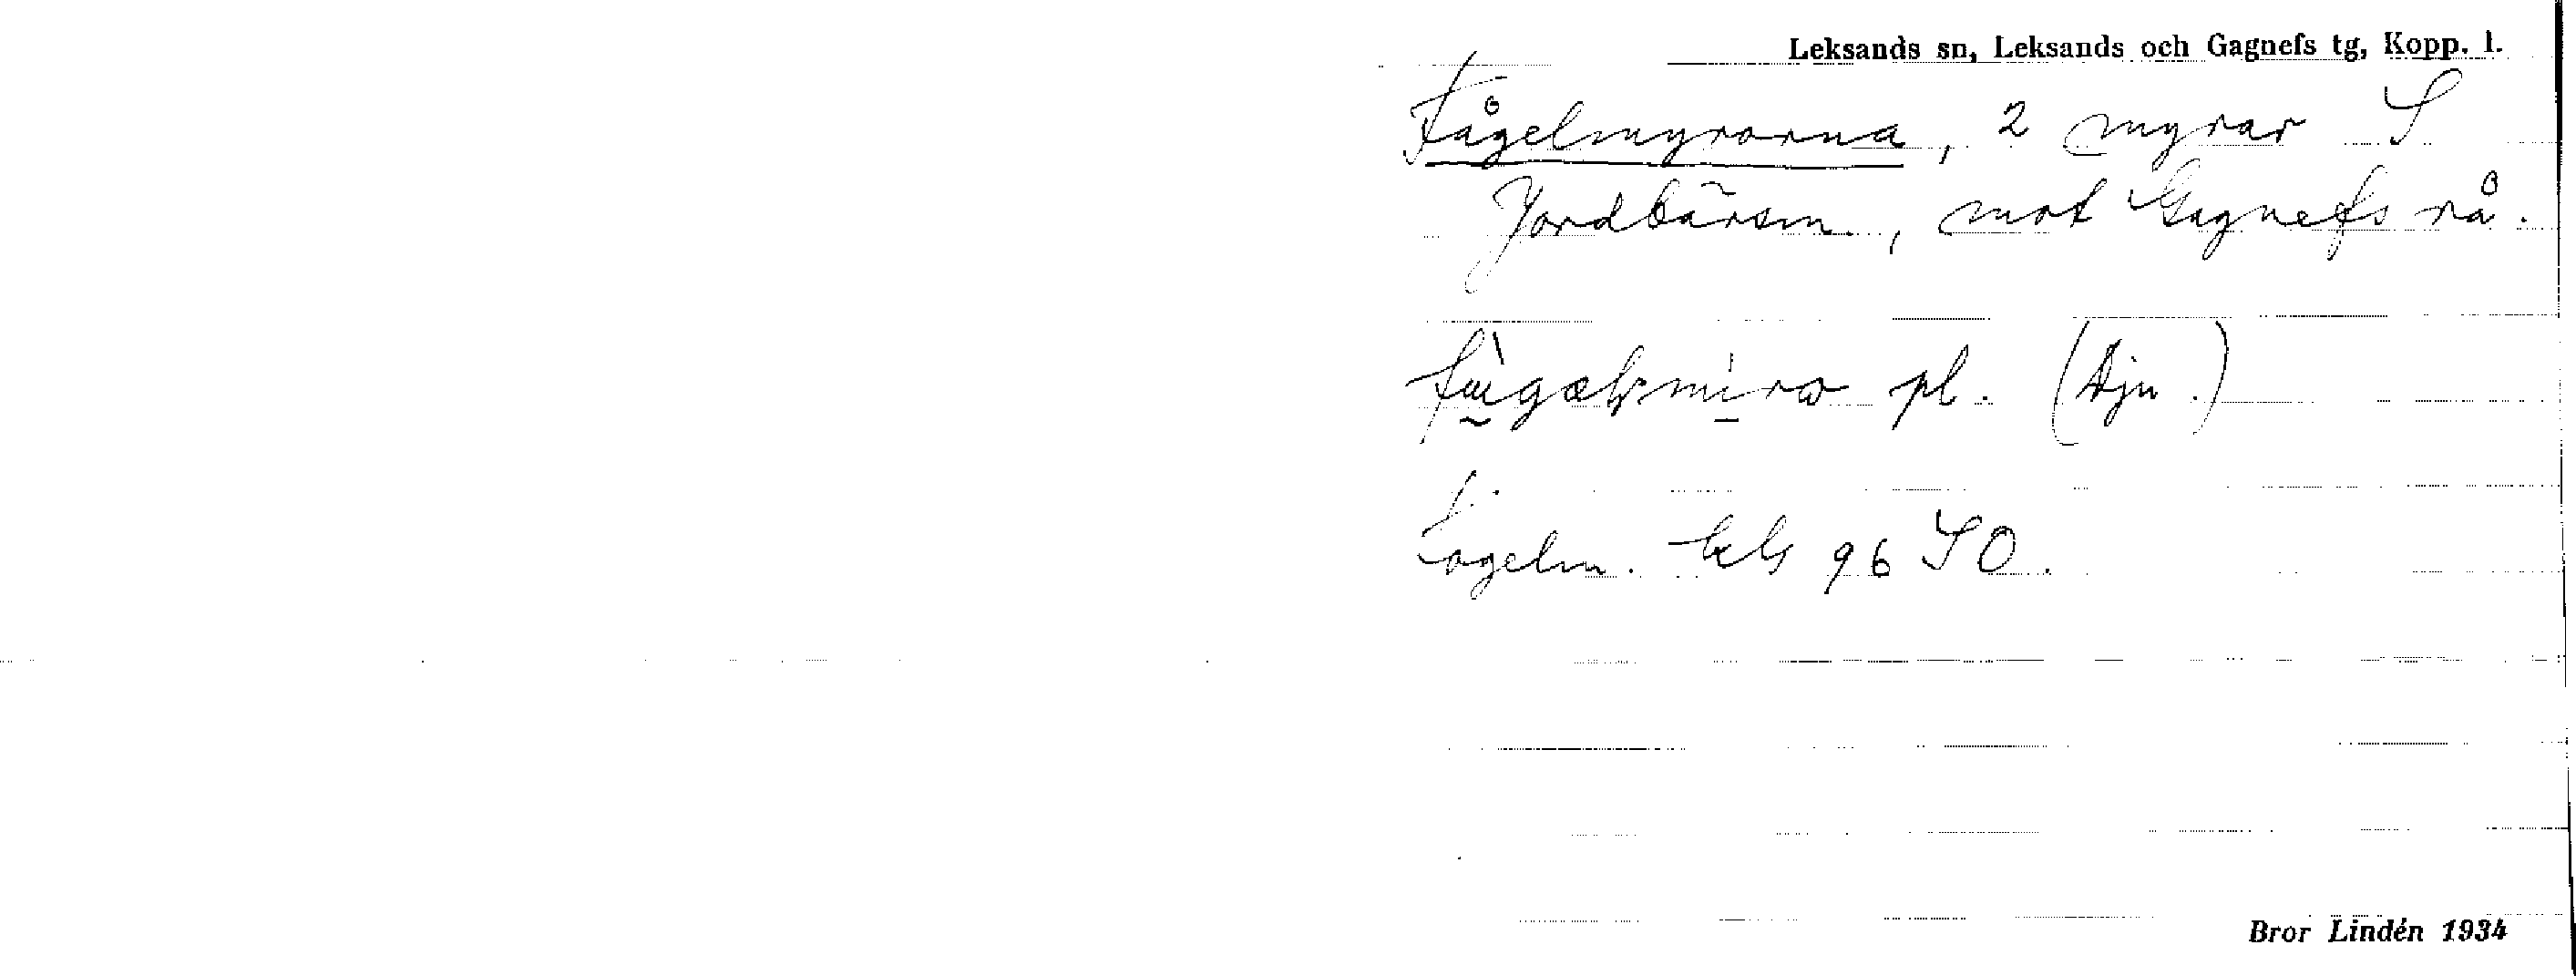 Leksands sn, Leksands och Gagnefs tg, Kopp. l.
Fågelmyrorna, 2 myrar S
Jordbärsm., mot Gagnefs rå.
pl. (Dju.)
F.
ogelm. Ekbl 96 SO.
Bror Lindén 1934